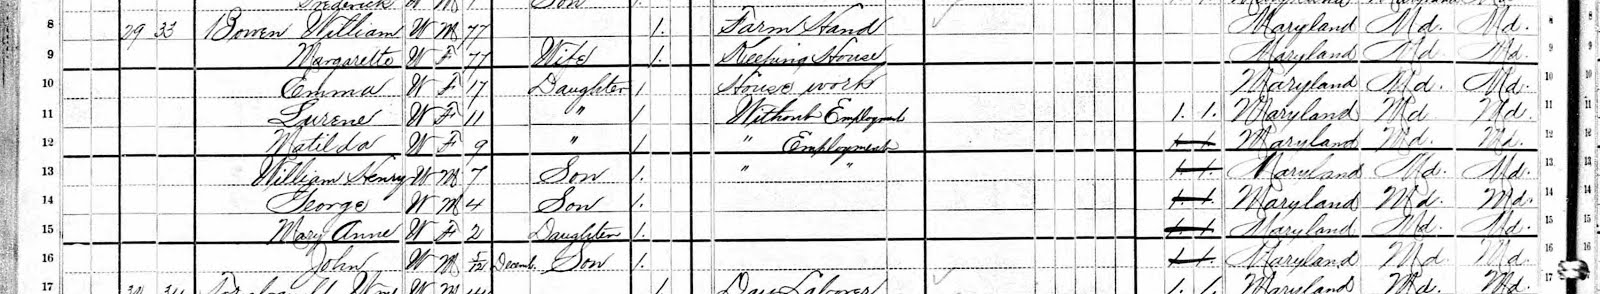 Frederick W M 1 Son 1. Maryland Maryland Md.
8 29 33 Bowen William W M 77 1. Farm Hand Maryland Md. Md. 8
9 Margarette W F 77 Wife 1. Keeping House Maryland Md. Md. 9
10 Emma W F 17 Daughter 1 House work Maryland Md. Md. 10
11 Lurene W F 11 " 1 Without Employment 1. 1. Maryland Md Md. 11
12 Matilda W F 9 " 1 " Employment 1 1 Maryland Md. Md. 12
13 William Henry W M 7 Son 1. " " 1 1. Maryland Md. Md. 13
14 George W M 4 Son 1. 1 1. Maryland Md. Md. 14
15 Mary Anne W F 2 Daughter 1. 1 1. Maryland Md. Md. 15
16 John W M 5/12 Decemb. Son 1. 1 1. Maryland Md Md. 16
17 W M 1. Day Laborer 1. 1. Maryland Md. Md. 17